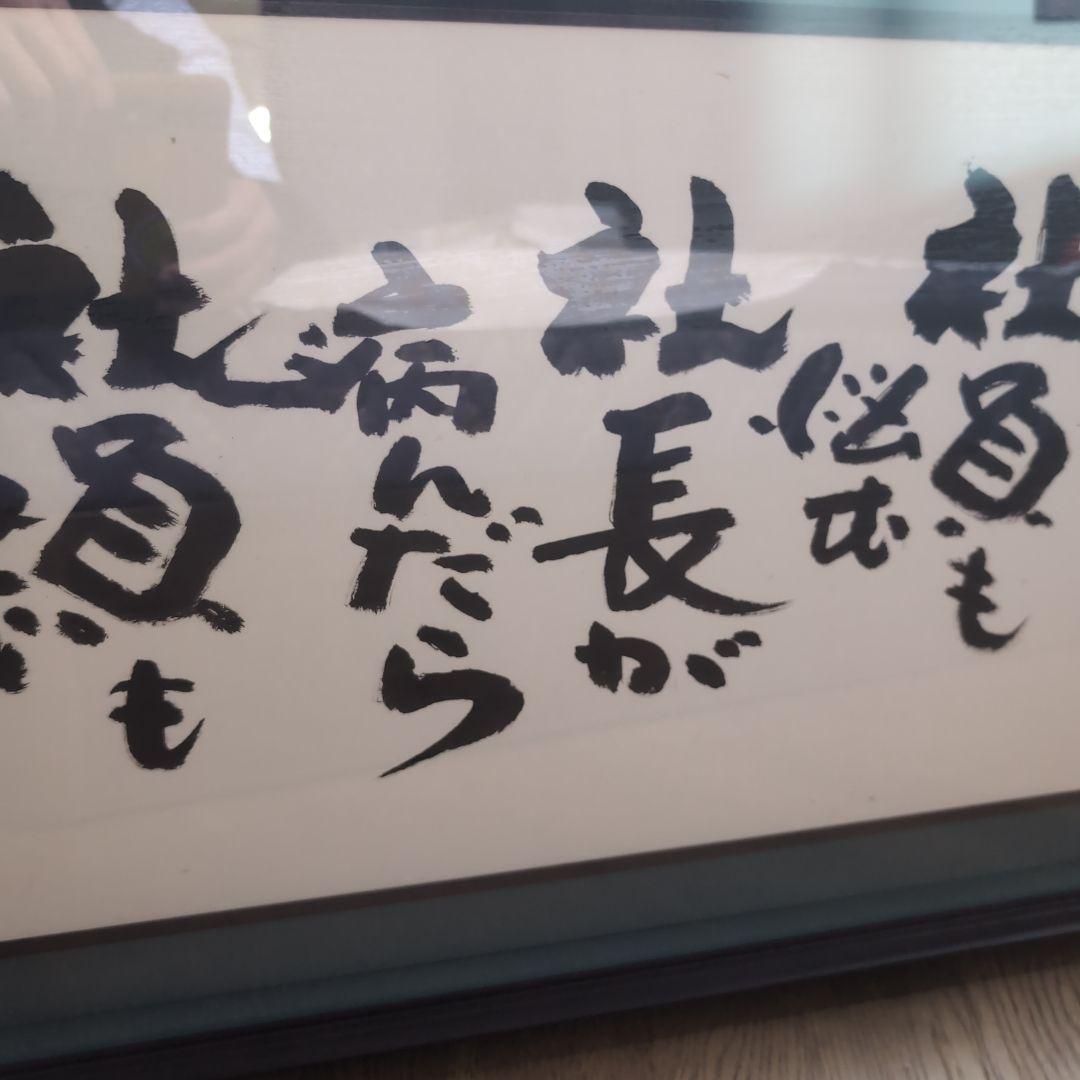 社員も
悩む
社長が
病んだら
社員も